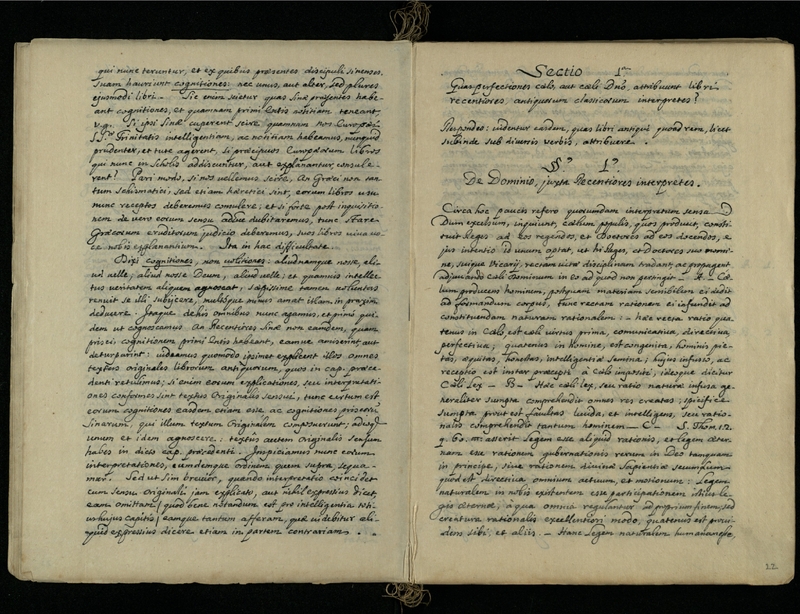 qui nunc teruntur, et ex quibus præsentes discipuli sinenses
suam hauriunt cognitiones: nec unus, aut alter, sed plures
ejusmodi libri. — Sic enim scietur quas Sinæ præsentes habe-
ant cognitiones, et quamnam primi Entis notitiam teneant
v.g. Si ipsi Sinæ cuperent scire, quamnam nos Europæi
SS.mæ Trinitatis intelligentiam, ac notitiam habeamus,
prudenter, et tute agerent, si præcipuos Europæorum libros
qui nunc in Scholis addiscuntur, aut explanantur, consule-
rent? Pari modo, si nos vellemus scire, An Græci non tan-
tum schismatici, sed etiam hæretici sint, eorum libros usu
nunc receptos deberemus consulere; et si forte post inquisitio-
nem de vero eorum sensu adhuc dubitaremus, nunc stare
Græcorum eruditorum judicio deberemus, suos libros viva vo-
ce nobis explanantium. Ita in hac difficultate.
Dixi cognitiones, non volitiones: aliud namque nosse, ali-
ud velle; aliud nosse Deum, aliud velle; et quamvis intellec-
tus veritatem aliquam agnoscat, sæpissime tamen voluntas
renuit se illi subijcere, multoque minus amat illam in praxim
deducere. Itaque de his omnibus nunc agamus, et primo qui-
dem ut cognoscamus An Recentiores Sinæ non eamdem, quam
prisci cognitionem primi Entis habeant, eamve amiserint aut
deturparint: videamus quomodo ipsimet explicent illos omnes
textus originales librorum antiquorum, quos in cap. præce-
denti retulimus; si enim eorum explicationes, seu interpretati-
ones conformes sint textus Originalis sensui, tunc certum est
eorum cognitiones easdem etiam esse ac cognitiones priscorum
Sinarum, qui illum textum Originalem composuerunt; adeoque
unum et idem agnoscere. textus autem Originalis sensum
habes in dicto cap. præcedenti. Inspiciamus nunc eorum
interpretationes, eumdemque ordinem, quem supra, sequa-
mur. Sed ut sim brevior, quando interpretatio coincidet
cum sensu Originali jam explicato, aut nihil expressius dicet,
eam omittam (quod bene notandum est pro intelligentia toti-
us hujus capitis) eamque tantum afferam, quæ videbitur ali-
quid expressius dicere etiam in partem contrariam.
Sectio 1.a
Quas perfectiones cælo, aut cæli D.no, attribuunt libri
recentiores, antiquorum classicorum interpretes?
Respondeo: videntur easdem, quas libri antiqui quoad rem, licet
subinde sub diversis verbis, attribuere.
§.us 1.us
De Dominio, juxta Recentiores interpretes.
Circa hoc paucis refero quorumdam interpretum sensa
Dum excelsum, inquiunt, cælum populos, quos produxit, consti-
tuit Reges ad eos regendos, et Doctores ad eos docendos,
jus intentio id unum optat, ut hi Reges, et Doctores suo nomi-
ne, suique Vicarij, rectam vivendi disciplinam tradant, ac propagent,
adjuvando cæli Dominum in eo ad quod non pertingit — A — Cæ-
lum producens hominem, postquam materiam sensibilem ei dedit
ad formandum corpus, tunc rectam rationem ei infundit ad
constituendam naturam rationalem: — hæc recta ratio qua-
tenus in Cælo est cæli virtus prima, communicativa, directiva
perfectiva; quatenus in Homine, est congenita, hominis pie-
tas, æquitas, honestas, intelligentiæ semina; hujus infusio, ac
receptio est instar præcepti à Cælo impositi, ideoque dicitur
Cæli Lex — B — Hæc cæli lex, seu ratio naturæ infusa ge-
neraliter sumpta comprehendit omnes res creatas; specifice
sumpta, prout est facultas lucida, et intelligens, seu ratio-
nalis comprehendit tantum hominem — C — S. Thom. 1.2.
q. 90. asserit Legem esse aliquid rationis, et legem æter-
nam esse rationem gubernationis rerum in Deo tanquam
in principe, sive rationem divinæ Sapientiæ secundum
quod est directiva omnium actuum, et motionum: Legem
naturalem in nobis existentem esse participationem istius le-
gis æternæ, à qua omnia regulantur ad proprium finem, sed
creatura rationalis excellentiori modo, quatenus est provi-
dens sibi, et alijs. — Hanc Legem naturalem humanam esse
22